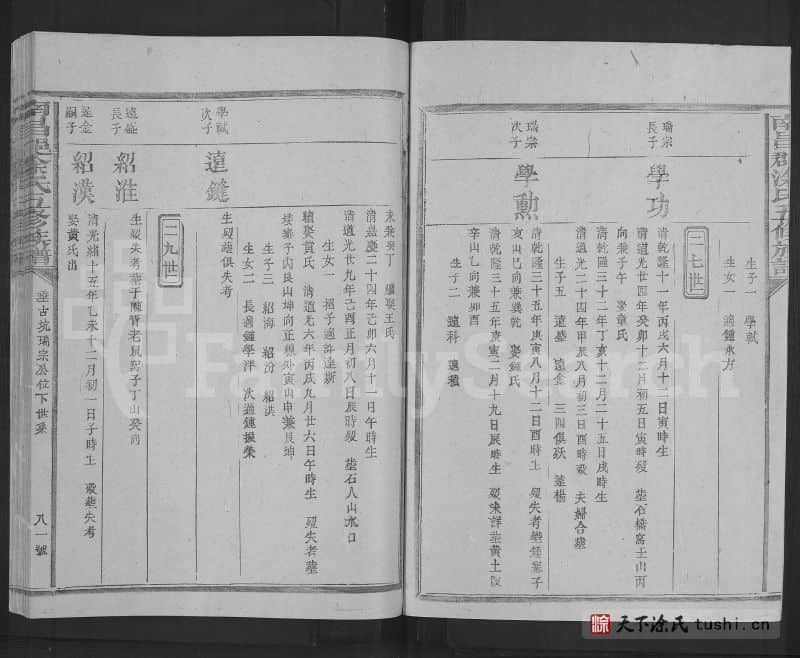 南昌郡涂氏五修族譜
生子一 學軾
生女一 適鍾永方
二七世
瑞宗長子
學功
清乾隆三十一年丙戌六月十二日寅時生
清道光廿四年癸卯十二月初五日寅時歿 塟石橋窩壬山丙
向兼子午 娶章氏
清乾隆三十二年丁亥十二月二十五日戌時生
清道光二十四年甲辰八月初三日酉時歿 夫婦合塟
生子五 遠盛 遠金 三四俱殀 遠楊
瑞宗次子
學勲
清乾隆三十五年庚寅八月十二日酉時生 歿失考
亥山巳向兼巽乾 娶鍾氏
清乾隆三十五年庚寅二月十九日辰時生 歿未詳塟黃土坂
辛山乙向兼卯酉
生子二 遠科 遠種
未兼癸丁 繼娶王氏
學軾次子
遠鏈
清嘉慶二十四年己卯六月十一日午時生
清道光廿九年己酉正月初八日辰時歿 塟石人山水口
生女一 招子適許達斯
續娶黃氏 清道光六年丙戌九月廿六日午時生 歿失考塟
艮山坤向正穴外寅山申兼艮坤
生子三 紹海 紹汾 紹洪
生女二 長適鍾學泮 次適鍾振榮
生歿葬俱失考
二九世
遠盛長子
紹淮
生歿失考塟子陳背老鼠窩子丁山癸向
遠金嗣子
紹漢
清光緒十五年乙未十二月初一日子時生 歿葬失考
娶黃氏出
南昌郡涂氏五修族譜
垂古坑瑞宗公位下世系
八一號
FamilySearch
涂 天下涂氏 tushi.cn